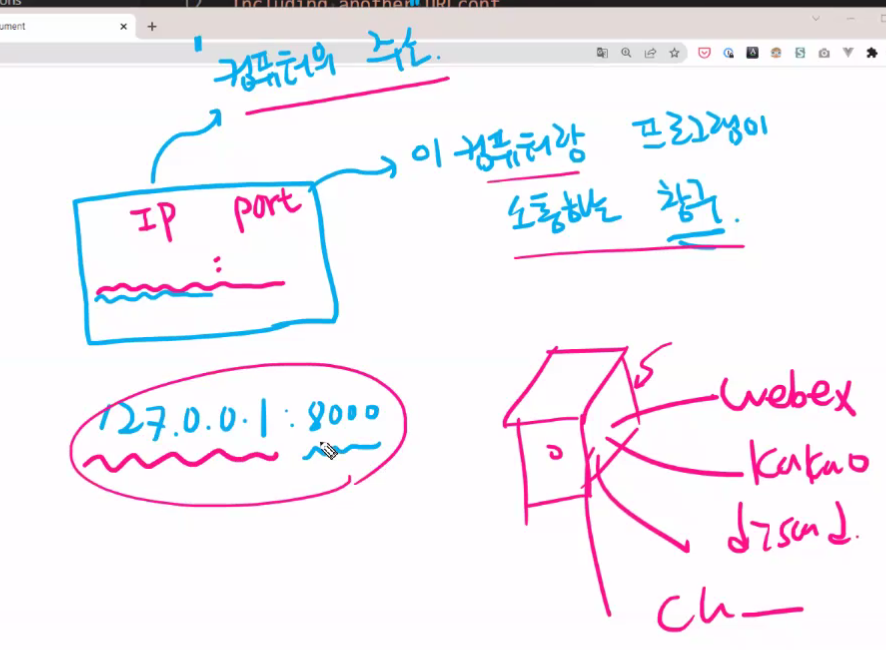 12 Including another URLconf
ument
컴퓨터의 주소.
이 컴퓨터랑 프로그램이
소통하는 창구.
IP port
:
127.0.0.1:8000
webex
kakao
Ch